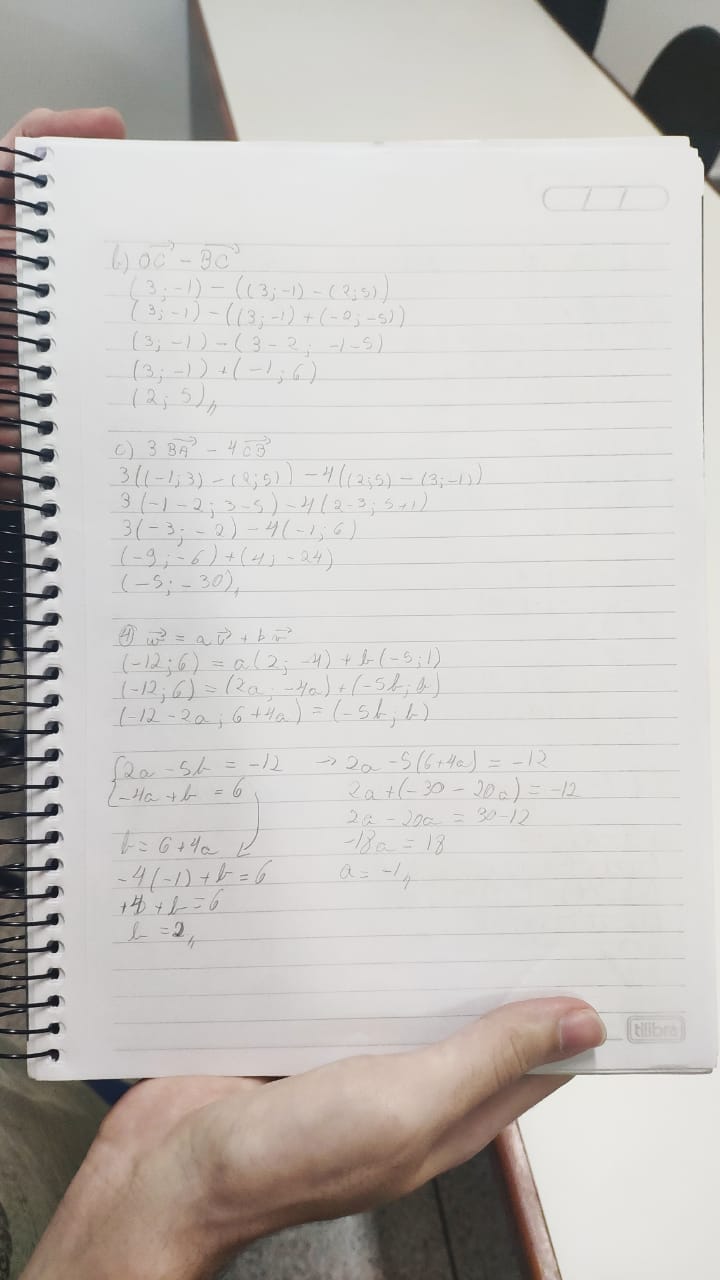 b) OC - BC
(3; -1) - ((3; -1) - (2; 5))
(3; -1) - ((3; -1) + (-2; -5))
(3; -1) - (3 - 2; -1 - 5)
(3; -1) + (-1; 6)
(2; 5)
c) 3 BA - 4 CB
3((-1; 3) - (2; 5)) - 4((2; 5) - (3; -1))
3(-1 - 2; 3 - 5) - 4(2 - 3; 5 + 1)
3(-3; -2) - 4(-1; 6)
(-9; -6) + (4; -24)
(-5; -30)
4) w = a v + b
(-12; 6) = a(2; -4) + b(-5; 1)
(-12; 6) = (2a; -4a) + (-5b; b)
(-12 - 2a; 6 + 4a) = (-5b; b)
{2a - 5b = -12 → 2a - 5(6 + 4a) = -12
{-4a + b = 6 2a + (-30 - 20a) = -12
2a - 20a = 30 - 12
b = 6 + 4a -18a = 18
-4(-1) + b = 6 a = -1
+4 + b = 6
b = 2
tilibra